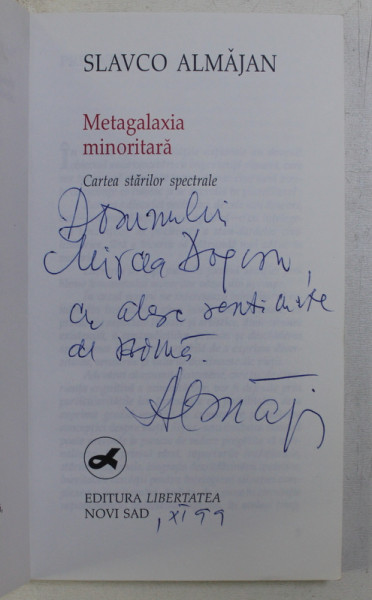 SLAVCO ALMĂJAN
Metagalaxia
minoritară
Cartea stărilor spectrale
Domnului
Mircea Dogaru,
cu alese sentimente
de stimă.
Almăj
EDITURA LIBERTATEA
NOVI SAD, XI 99